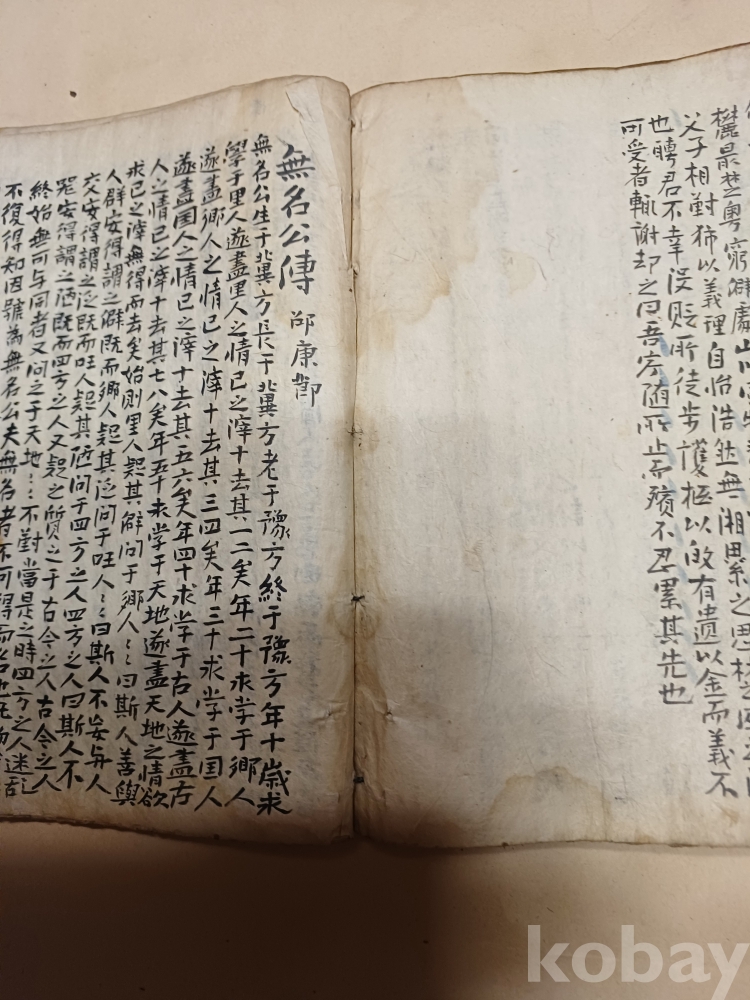 樾最楚粤窮僻處山川
父子相對猶以義理自怡浩然無湘纍之思
也聘君不幸没貶所徒步護柩以㱕有遺以金而義不
可受者輒謝却之曰吾寧随所止而殯不忍累其先也
無名公傳 邵康節
無名公生于冀方長于冀方老于豫方終于豫方年十歲求
學于里人遂盡里人之情已之滓十去其一二矣年二十求学于鄉人
遂盡鄉人之情已之滓十去其三四矣年三十求学于国人
遂盡国人之情已之滓十去其五六矣年四十求学于古人遂盡古
人之情已之滓十去其七八矣年五十求学于天地遂盡天地之情欲
求已之滓無得而去矣始則里人疑其僻問于鄉人〻〻曰斯人善與
人群安得謂之僻既而鄉人疑其泛問于国人〻〻曰斯人不妄与人
交安得謂之泛既而国人疑其陋問于四方之人四方之人曰斯人不
器安得謂之陋既而四方之人又疑之質之于古今之人古今之人
終始無可与同者又问之于天地〻〻不對當是之時四方之人迷乱
不復得知因號為無名公夫無名者不可得而名也